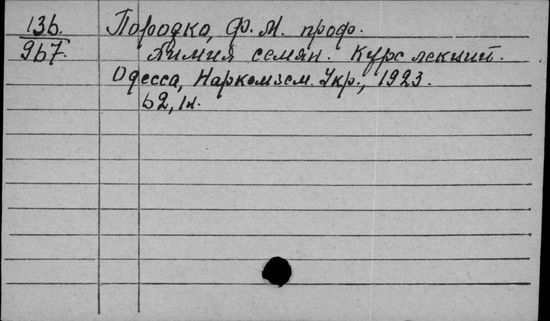 136.
967.
Породко, Ф. М. проф.
Химия семян. Курс лекций.
Одесса, Наркомзем. Укр., 1923.
62, 1л.